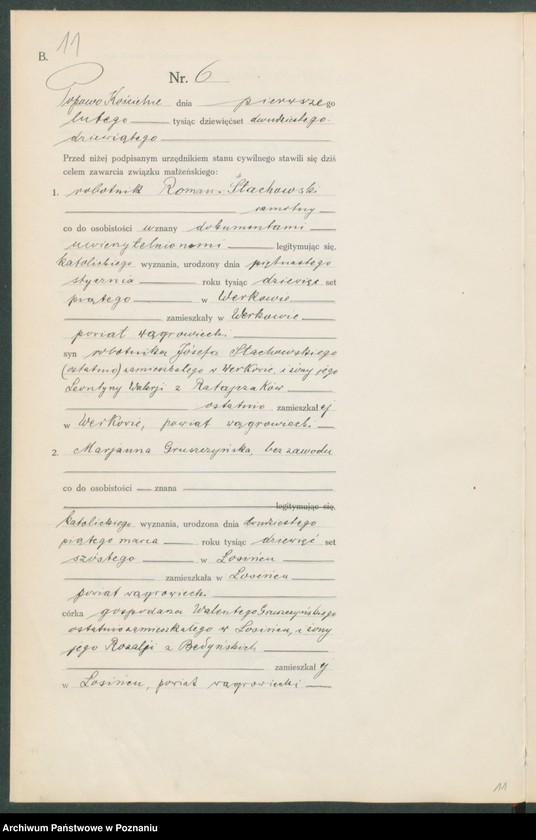 B. 11
Nr. 6
Popowo Kościelne dnia pierwszego
lutego tysiąc dziewięćset dwudziestego
dziewiątego
Przed niżej podpisanym urzędnikiem stanu cywilnego stawili się dziś
celem zawarcia związku małżeńskiego:
1. robotnik Roman Stachowski
samotny
co do osobistości uznany dokumentami
uwierzytelnionemi legitymując się,
katolickiego wyznania, urodzony dnia piętnastego
stycznia roku tysiąc dziewięć set
piątego w Werkowie
zamieszkały w Werkowie
powiat wągrowiecki
syn robotnika Józefa Stachowskiego
(ostatnio) zamieszkałego w Werkowie, i żony jego
Leontyny Walerji z Ratajczaków
ostatnio zamieszkałej
w Werkowie, powiat wągrowiecki
2. Marjanna Gruszczyńska, bez zawodu
co do osobistości znana
legitymując się,
katolickiego wyznania, urodzona dnia dwudziestego
piątego marca roku tysiąc dziewięć set
szóstego w Łosińcu
zamieszkała w Łosińcu
powiat wągrowiecki
córka gospodarza Walentego Gruszczyńskiego
ostatnio zamieszkałego w Łosińcu, i żony
jego Rozalji z Bedyńskich
zamieszkały
w Łosińcu, powiat wągrowiecki
11
Archiwum Państwowe w Poznaniu